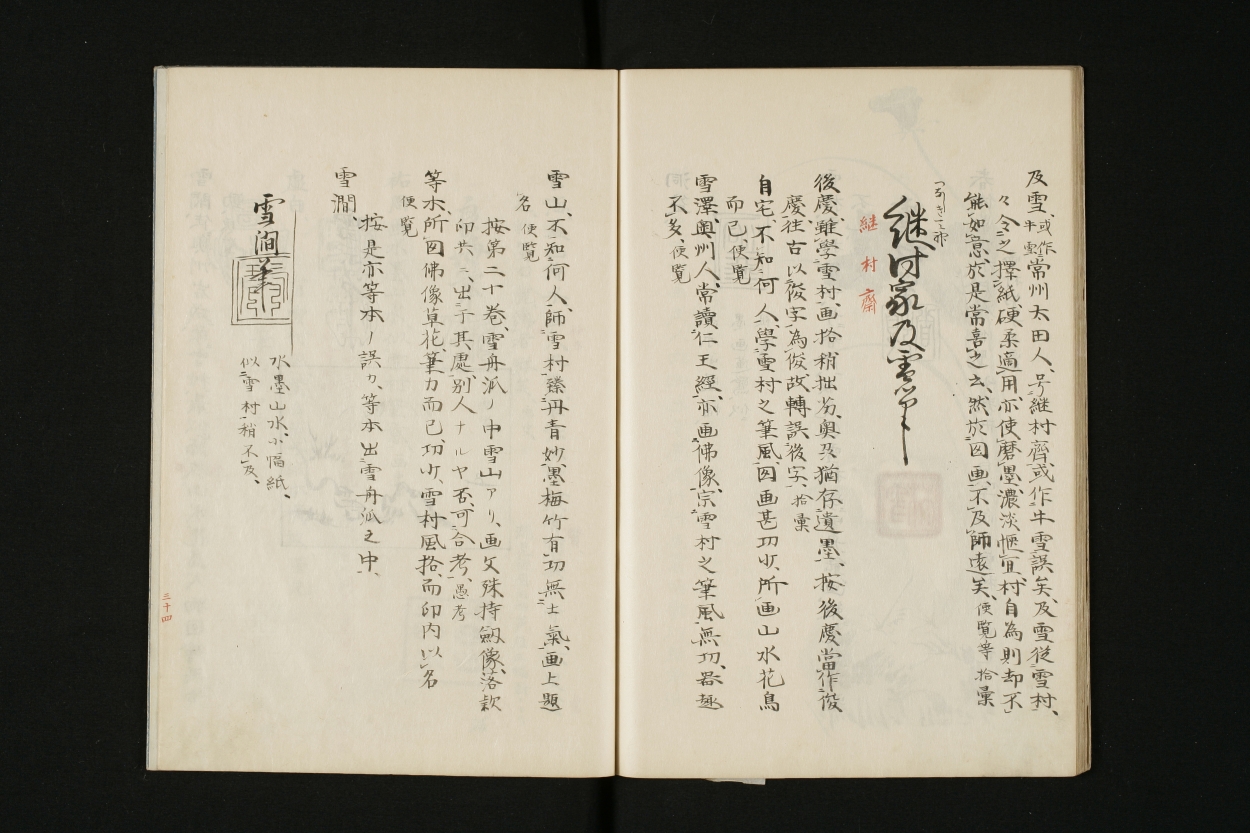 及雪、或作牛雪常州太田人、号継村齊、或作牛雪誤矣、及雪従雪村、
々令之擇紙、硬柔適用、亦使磨墨、濃淡愜宜、村自為則却不
能如意、於是常喜之云、然於図画、不及師遠矣、便覧等拾彙
継村家及雪筆
継村齋
後慶、雖学雪村、画拾稍拙劣、奥又猶存遺墨、按後慶當作俊
慶、往古以俊字為俊、故轉誤後字、拾彙
自宅、不知何人、學雪村之筆風、図画甚功少、所画山水花鳥
而已、便覧
雪澤、奥州人、常讀仁王經、亦画佛像、宗雪村之筆風、無功、器趣
不多、便覧
雪山、不知何人、師雪村、臻丹青妙、墨梅竹有功無士氣、画上題
名 便覧
按第二十巻、雪舟派ノ中雪山アリ、画文殊持劔像、落款
印共ニ、出于其處、別人ナルヤ否、可合考、愚考
等木、所図佛像草花、筆力而已、功少、雪村風拾、而印内以名
便覧
按是亦等本ノ誤カ、等本出雪舟派之中、
雪澗、
雪澗筆
水墨山水、小幅紙、
似雪村、稍不及、
三十四